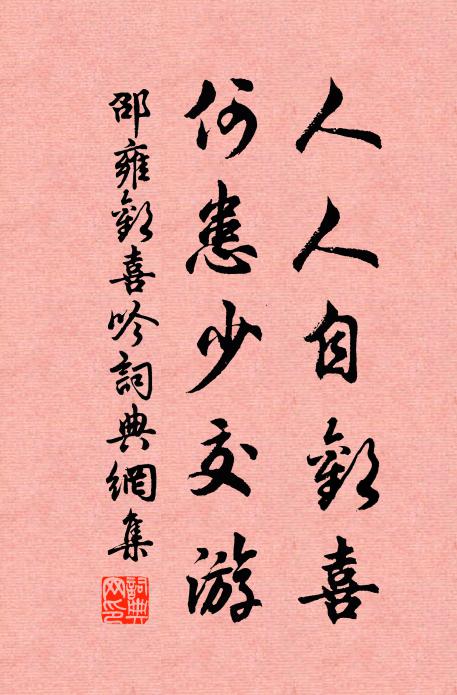 人人自歡喜
何患少交游
邵雍歡喜吟詞典網集
詞典网印